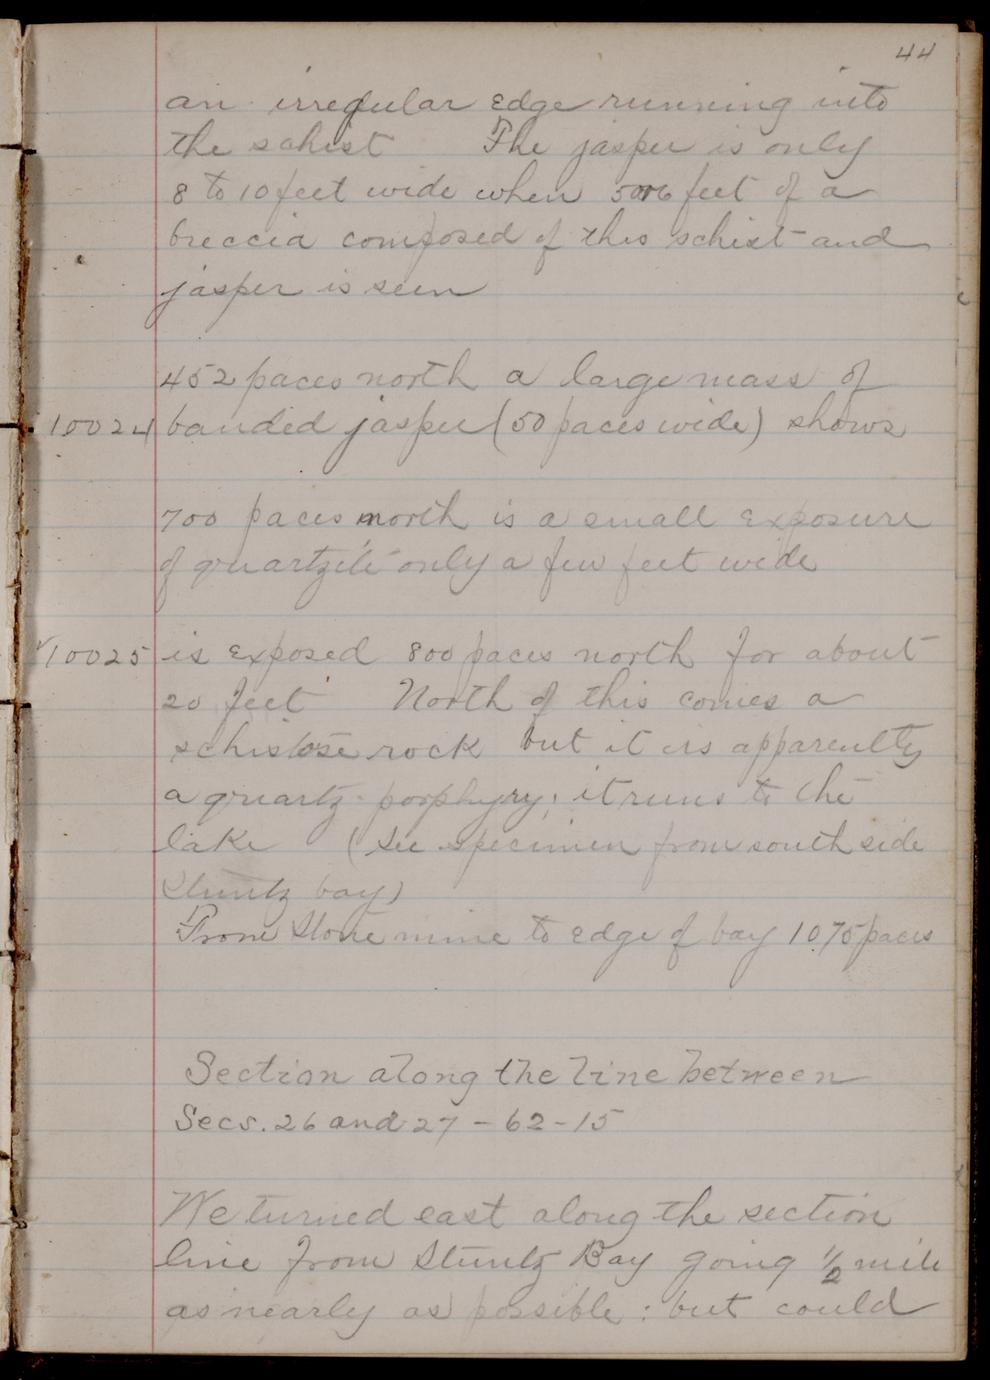 44
an irregular edge running into
the schist The jasper is only
8 to 10 feet wide when 5 or 6 feet of a
breccia composed of this schist and
jasper is seen
452 paces north a large mass of
10024 banded jasper (50 paces wide) shows
700 paces north is a small exposure
of quartzite only a few feet wide
✓10025 is exposed 800 paces north for about
20 feet North of this comes a
schistose rock but it is apparently
a quartz-porphyry; it runs to the
lake (See specimen from south side
Stuntz bay)
From Stone mine to edge of bay 1075 paces
Section along the line between
Secs. 26 and 27 - 62 - 15
We turned east along the section
line from Stuntz Bay going 1/2 mile
as nearly as possible: but could